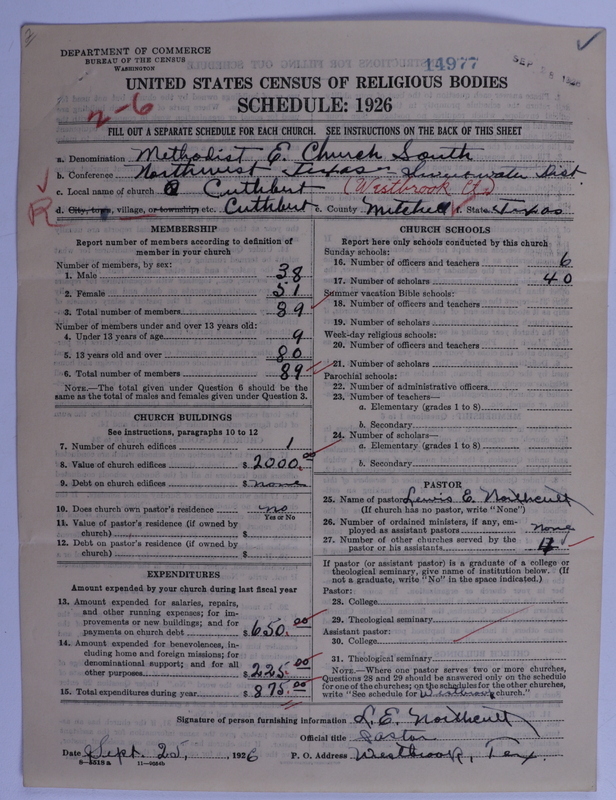 DEPARTMENT OF COMMERCE
BUREAU OF THE CENSUS
WASHINGTON
14977
SEP 1926
UNITED STATES CENSUS OF RELIGIOUS BODIES
2-6
SCHEDULE: 1926
FILL OUT A SEPARATE SCHEDULE FOR EACH CHURCH. SEE INSTRUCTIONS ON THE BACK OF THIS SHEET
a. Denomination Methodist E. Church South
b. Conference Northwest Texas - Sweetwater Dist.
c. Local name of church Cuthbert (Westbrook Ct.)
R d. City, town, village, or township, etc. Cuthbert e. County Mitchell f. State Texas
MEMBERSHIP
Report number of members according to definition of
member in your church
Number of members, by sex:
1. Male 38
2. Female 51
3. Total number of members 89
Number of members under and over 13 years old:
4. Under 13 years of age 9
5. 13 years old and over 80
6. Total number of members 89
NOTE.—The total given under Question 6 should be the
same as the total of males and females given under Question 3.
CHURCH BUILDINGS
See instructions, paragraphs 10 to 12
7. Number of church edifices 1
8. Value of church edifices $ 2000.00
9. Debt on church edifices $ none
10. Does church own pastor's residence no
Yes or No
11. Value of pastor's residence (if owned by
church) $
12. Debt on pastor's residence (if owned by
church) $
EXPENDITURES
Amount expended by your church during last fiscal year
13. Amount expended for salaries, repairs,
and other running expenses; for im-
provements or new buildings; and for
payments on church debt $ 650.00
14. Amount expended for benevolences, in-
cluding home and foreign missions; for
denominational support; and for all
other purposes $ 225.00
15. Total expenditures during year $ 875.00
CHURCH SCHOOLS
Report here only schools conducted by this church
Sunday schools:
16. Number of officers and teachers 6
17. Number of scholars 40
Summer vacation Bible schools:
18. Number of officers and teachers
19. Number of scholars
Week-day religious schools:
20. Number of officers and teachers
21. Number of scholars
Parochial schools:
22. Number of administrative officers
23. Number of teachers—
a. Elementary (grades 1 to 8)
b. Secondary
24. Number of scholars—
a. Elementary (grades 1 to 8)
b. Secondary
PASTOR
25. Name of pastor Lewis E. Northcutt
(If church has no pastor, write "None")
26. Number of ordained ministers, if any, em-
ployed as assistant pastors none
27. Number of other churches served by the
pastor or his assistants
If pastor (or assistant pastor) is a graduate of a college or
theological seminary, give name of institution below. (If
not a graduate, write "No" in the space indicated.)
Pastor:
28. College
29. Theological seminary
Assistant pastor:
30. College
31. Theological seminary
NOTE.—Where one pastor serves two or more churches,
Questions 28 and 29 should be answered only on the schedule
for one of the churches; on the schedules for the other churches,
write "See schedule for Westbrook church."
Signature of person furnishing information L. E. Northcutt
Official title Pastor
Date Sept. 25, 1926 P. O. Address Westbrook, Tex.
8-5518a 11-9554b